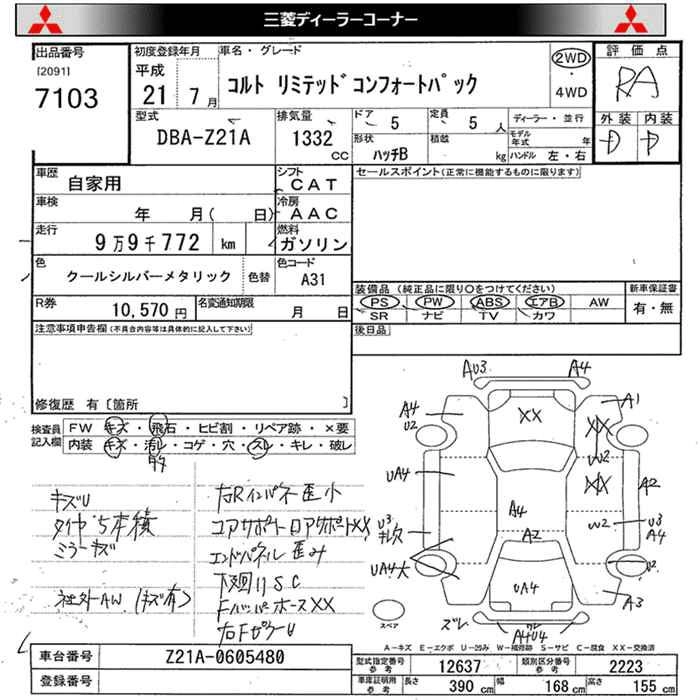 三菱ディーラーコーナー
出品番号
[2091]
7103
初度登録年月
平成
21 7月
車名・グレード
コルト リミテッドコンフォートパック
2WD
・
4WD
評価点
RA
外装 内装
D D
型式
DBA-Z21A
排気量
1332
cc
ドア
5
定員
5
人
形状
ハッチB
積載
kg
ディーラー・並行
モデル
年式 年
ハンドル 左・右
車歴
自家用
シフト
CAT
車検
年 月( 日)
冷房
AAC
走行
9万9千772 km
燃料
ガソリン
色
クールシルバーメタリック
色替
色コード
A31
R券
10,570 円
名変通知期限
月 日
セールスポイント(正常に機能するものに限ります)
装備品(純正品に限り○をつけてください)
PS PW ABS エアB AW
SR ナビ TV カワ
新車保証書
有・無
後日品
注意事項申告欄(不具合内容等は具体的に記入して下さい)
修復歴 有〔箇所 〕
検査員
記入欄
FW キズ・飛石・ヒビ割・リペア跡・×要
内装 キズ・汚レ・コゲ・穴・スレ・キレ・破レ
キズU
タイヤ5本積
ミラーキズ
社外AW(キズ有)
右Rインパネ歪小
コアサポートロアサポートXX
エンドパネル歪み
下廻りSC
FバンパホースXX
AU3
A4
A4
U2
A1
XX
XX
W2
XX
UA4
A2
A4
W2
U3
A4
A2
U3
UA4大
U2
UA4
A3
ズレ
A4U4
スペア
A-キズ E-エクボ U-凹み W-補修跡 S-サビ C-腐食 XX-交換済
車台番号
Z21A-0605480
登録番号
型式指定番号
参考
12637
類別区分番号
参考
2223
車庫証明用
参考
長さ
390 cm
幅
168 cm
高さ
155 cm